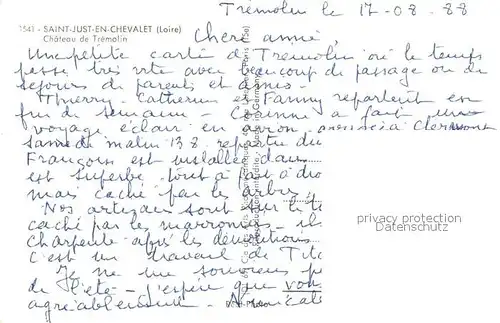 Trémolin le 17-08-88
1541 - SAINT-JUST-EN-CHEVALET (Loire)
Château de Trémolin
Chers amis,
Une petite carte de Tremolin où le temps
passe très vite avec beaucoup de passage ou de
sejours de parents et amis.
Thierry Catherine et Fanny repartent en
fin de semaine - Corinne a fait un
voyage éclair en avion. arrivée à Clermont
samedi matin 13 8 repartie du
François est installée dans
est superbe tout à fait à dro
mais caché par les arbres
Nos artisans sont sur le t
caché par les marronniers - il
charpente après les démolitions
c'est un travail de Tita
Je ne me souviens p
de l'été - j'espère que vou
agréablement -
privacy protection
Datenschutz